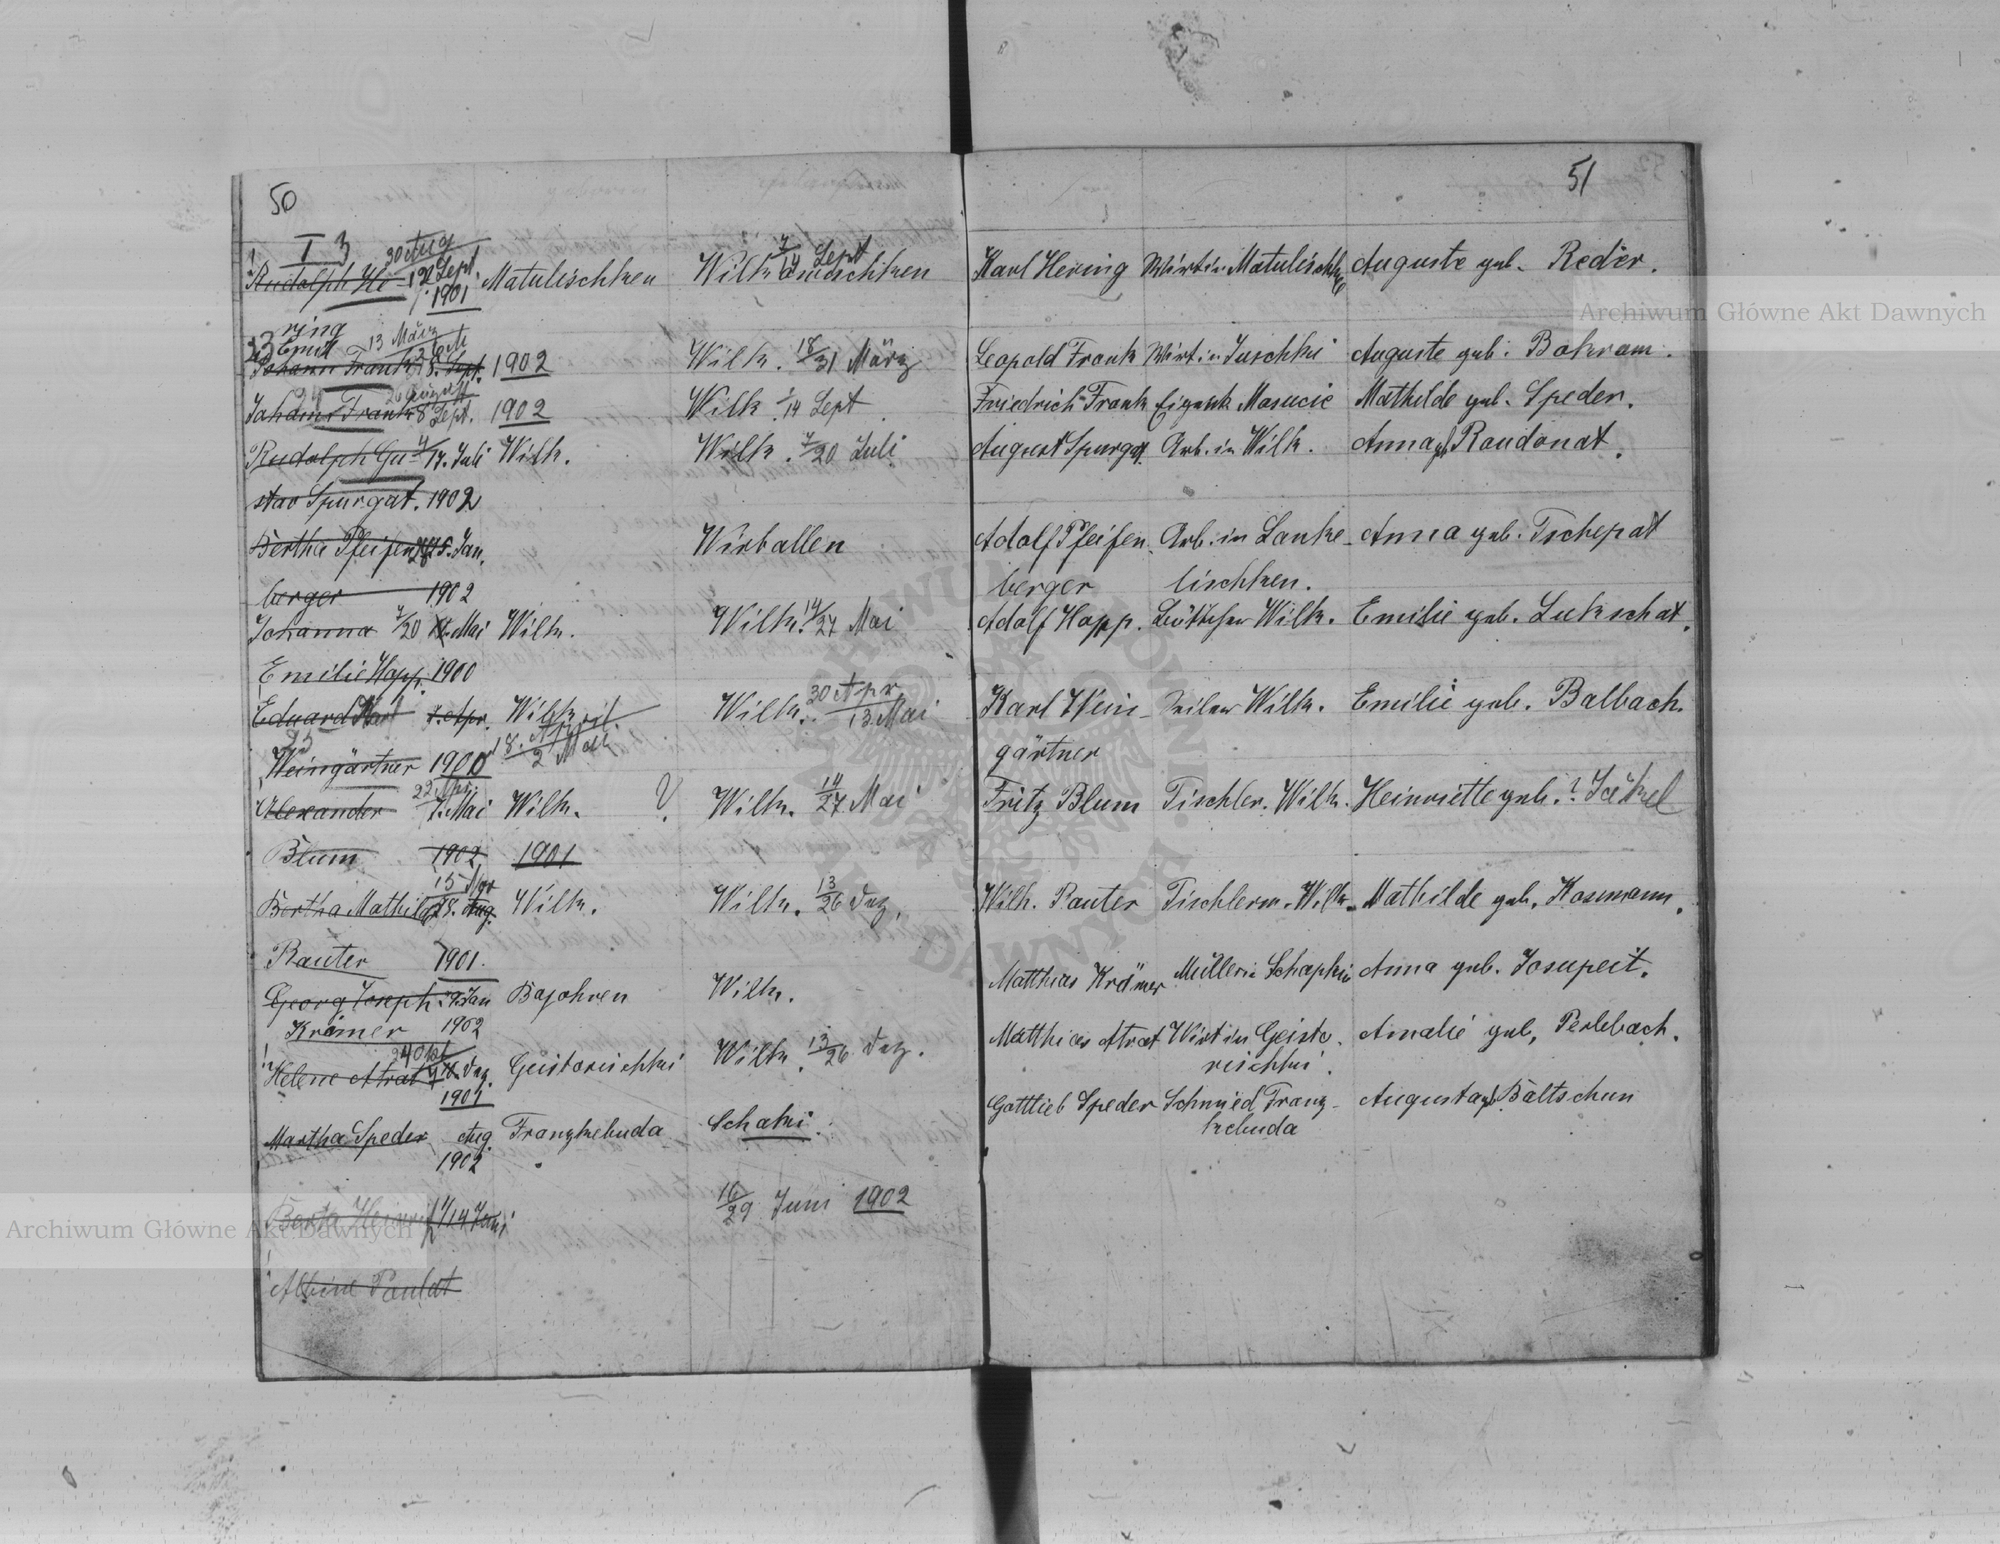 50
I 3
30 Aug
7/14 Sept
Rudolph He- 12 Sept. Matulischken Wilk
1901
ring
13 März
Emil
Johann Frank 8. Sept. 1902 Wilk. 18/31 März
August
Johann Frank 8 Sept. 1902 Wilk. 1/14 Sept
Rudolph Gu- 4/17. Juli Wilk. Wilk. 7/20 Juli
stav Spurgat. 1902
Bertha Pfeifen- Jan. Wirballen
berger 1902
Johanna 7/20 Mai Wilk. Wilk. 14/27 Mai
Emilie Happ. 1900
30 Apr
Eduard Karl Apr. Wilk. Wilk. 13 Mai
18. April
Weingärtner 1900 2 Mai
22 Apr.
Alexander 7. Mai Wilk. ? Wilk. 14/27 Mai
Blum 1902 1901
15
Bertha Mathilde 28. Aug. Wilk. Wilk. 13/26 Dez.
Rauter 1901.
Georg Joseph Jan Bajohren Wilk.
Krämer 1902
Helene Atrat Dez. Geistorischki Wilk. 13/26 Dez.
1901
Martha Speder Aug. Franzkebuda Schaki.
1902
16/29 Juni 1902
Berta 1/14 Juni
Albine Paulat
51
Karl Hering Wirt in Matulischke Auguste geb. Reder.
Leopold Frank Wirt in Juschki Auguste geb. Bokram.
Friedrich Frank Masucie Mathilde geb. Speder.
August Spurgat. Arb. in Wilk. Anna geb. Raudonat.
Adolf Pfeifen- Arb. in Lanke- Anna geb. Tschepat
berger lischken.
Adolf Happ. Böttcher Wilk. Emilie geb. Lukschat.
Karl Wein- Seiler Wilk. Emilie geb. Balbach.
gärtner
Fritz Blum Tischler. Wilk. Henriette geb. ? Jäkel
Wilh. Rauter Tischlerm. Wilk. Mathilde geb. Kosmann.
Matthias Krämer Müller in Schapkin Anna geb. Josupeit.
Matthias Atrat Wirt in Geisto- Amalie geb. Perlebach.
rischki.
Gottlieb Speder Schmied Franz- Augusta geb. Baltschun
kebuda
Archiwum Główne Akt Dawnych
Archiwum Główne Akt Dawnych